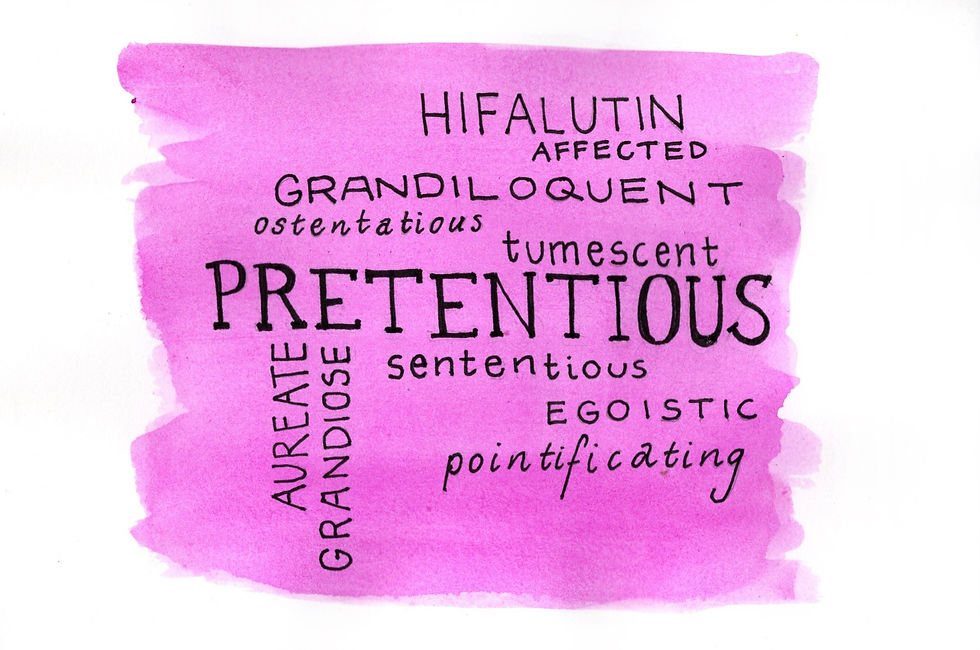 HIFALUTIN
AFFECTED
GRANDILOQUENT
ostentatious
tumescent
PRETENTIOUS
AUREATE
GRANDIOSE
sententious
EGOISTIC
pointificating